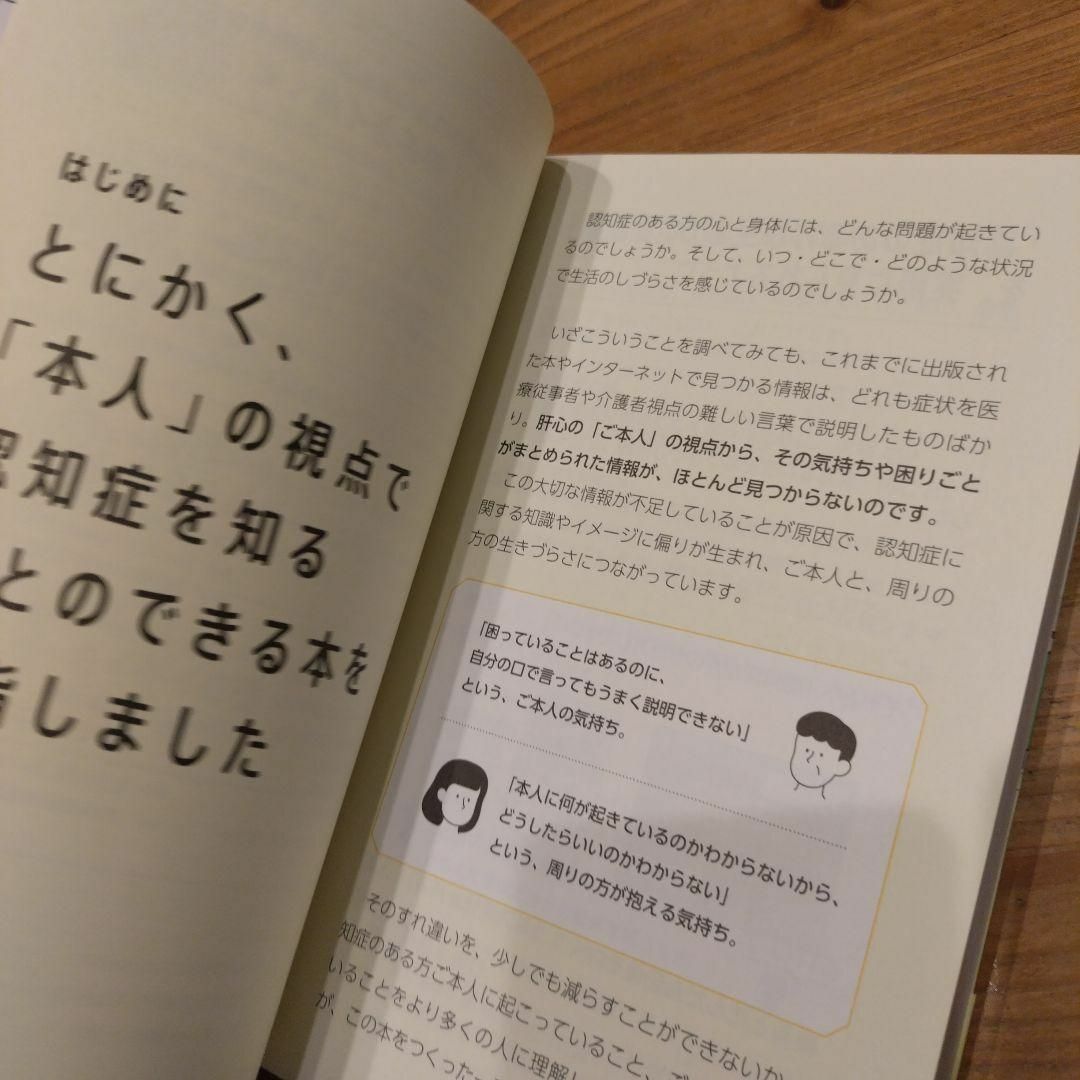 はじめに
とにかく、
「本人」の視点で
認知症を知る
とのできる本を
指しました
認知症のある方の心と身体には、どんな問題が起きてい
るのでしょうか。そして、いつ・どこで・どのような状況
で生活のしづらさを感じているのでしょうか。
いざこういうことを調べてみても、これまでに出版され
た本やインターネットで見つかる情報は、どれも症状を医
療従事者や介護者視点の難しい言葉で説明したものばか
り。肝心の「ご本人」の視点から、その気持ちや困りごと
がまとめられた情報が、ほとんど見つからないのです。
この大切な情報が不足していることが原因で、認知症に
関する知識やイメージに偏りが生まれ、ご本人と、周りの
方の生きづらさにつながっています。
「困っていることはあるのに、
自分の口で言ってもうまく説明できない」
という、ご本人の気持ち。
「本人に何が起きているのかわからないから、
どうしたらいいのかわからない」
という、周りの方が抱える気持ち。
そのすれ違いを、少しでも減らすことができないか
知症のある方ご本人に起こっていること、
いることをより多くの人に理解し
が、この本をつくった